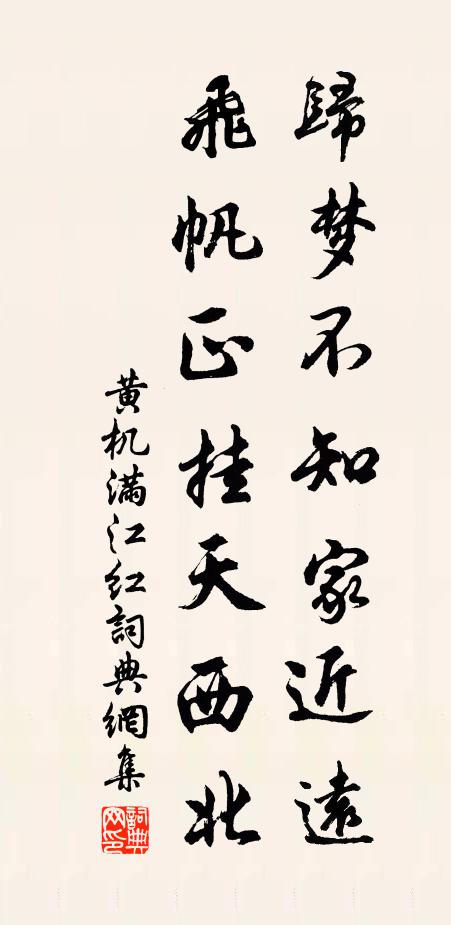 歸梦不知家近遠
飛帆正挂天西北
黄机满江红詞典網集
詞典网印